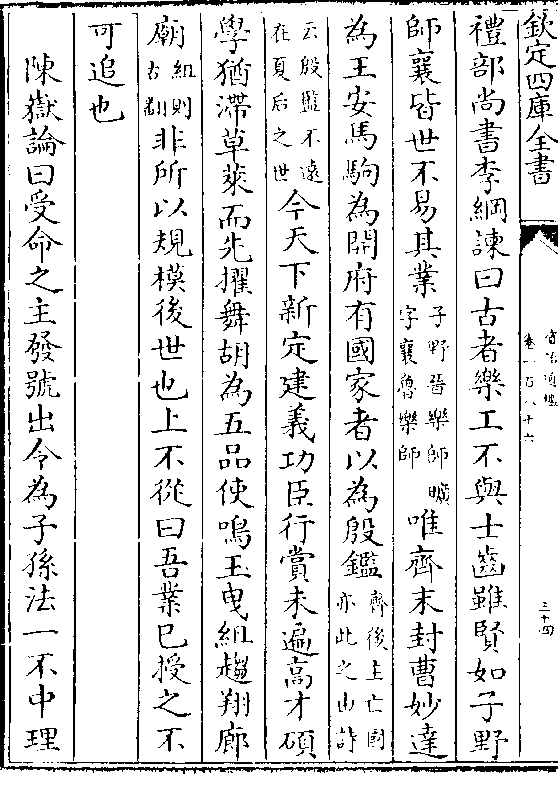 欽定四庫全書
資治通鑑
卷一百八十六
三十四
禮部尚書李綱諫曰古者樂工不與士齒雖賢如子野
師襄皆世不易其業子野晉樂師曠字襄魯樂師唯齊末封曹妙達
為王安馬駒為開府有國家者以為殷鑑齊後主亡國亦此之由詩
云殷鑑不遠在夏后之世今天下新定建義功臣行賞未遍高才碩
學猶滯草萊而先擢舞胡為五品使鳴玉曳組趨翔廊
廟組則古翻非所以規模後世也上不從曰吾業已授之不
可追也
陳嶽論曰受命之主發號出令為子孫法一不中理